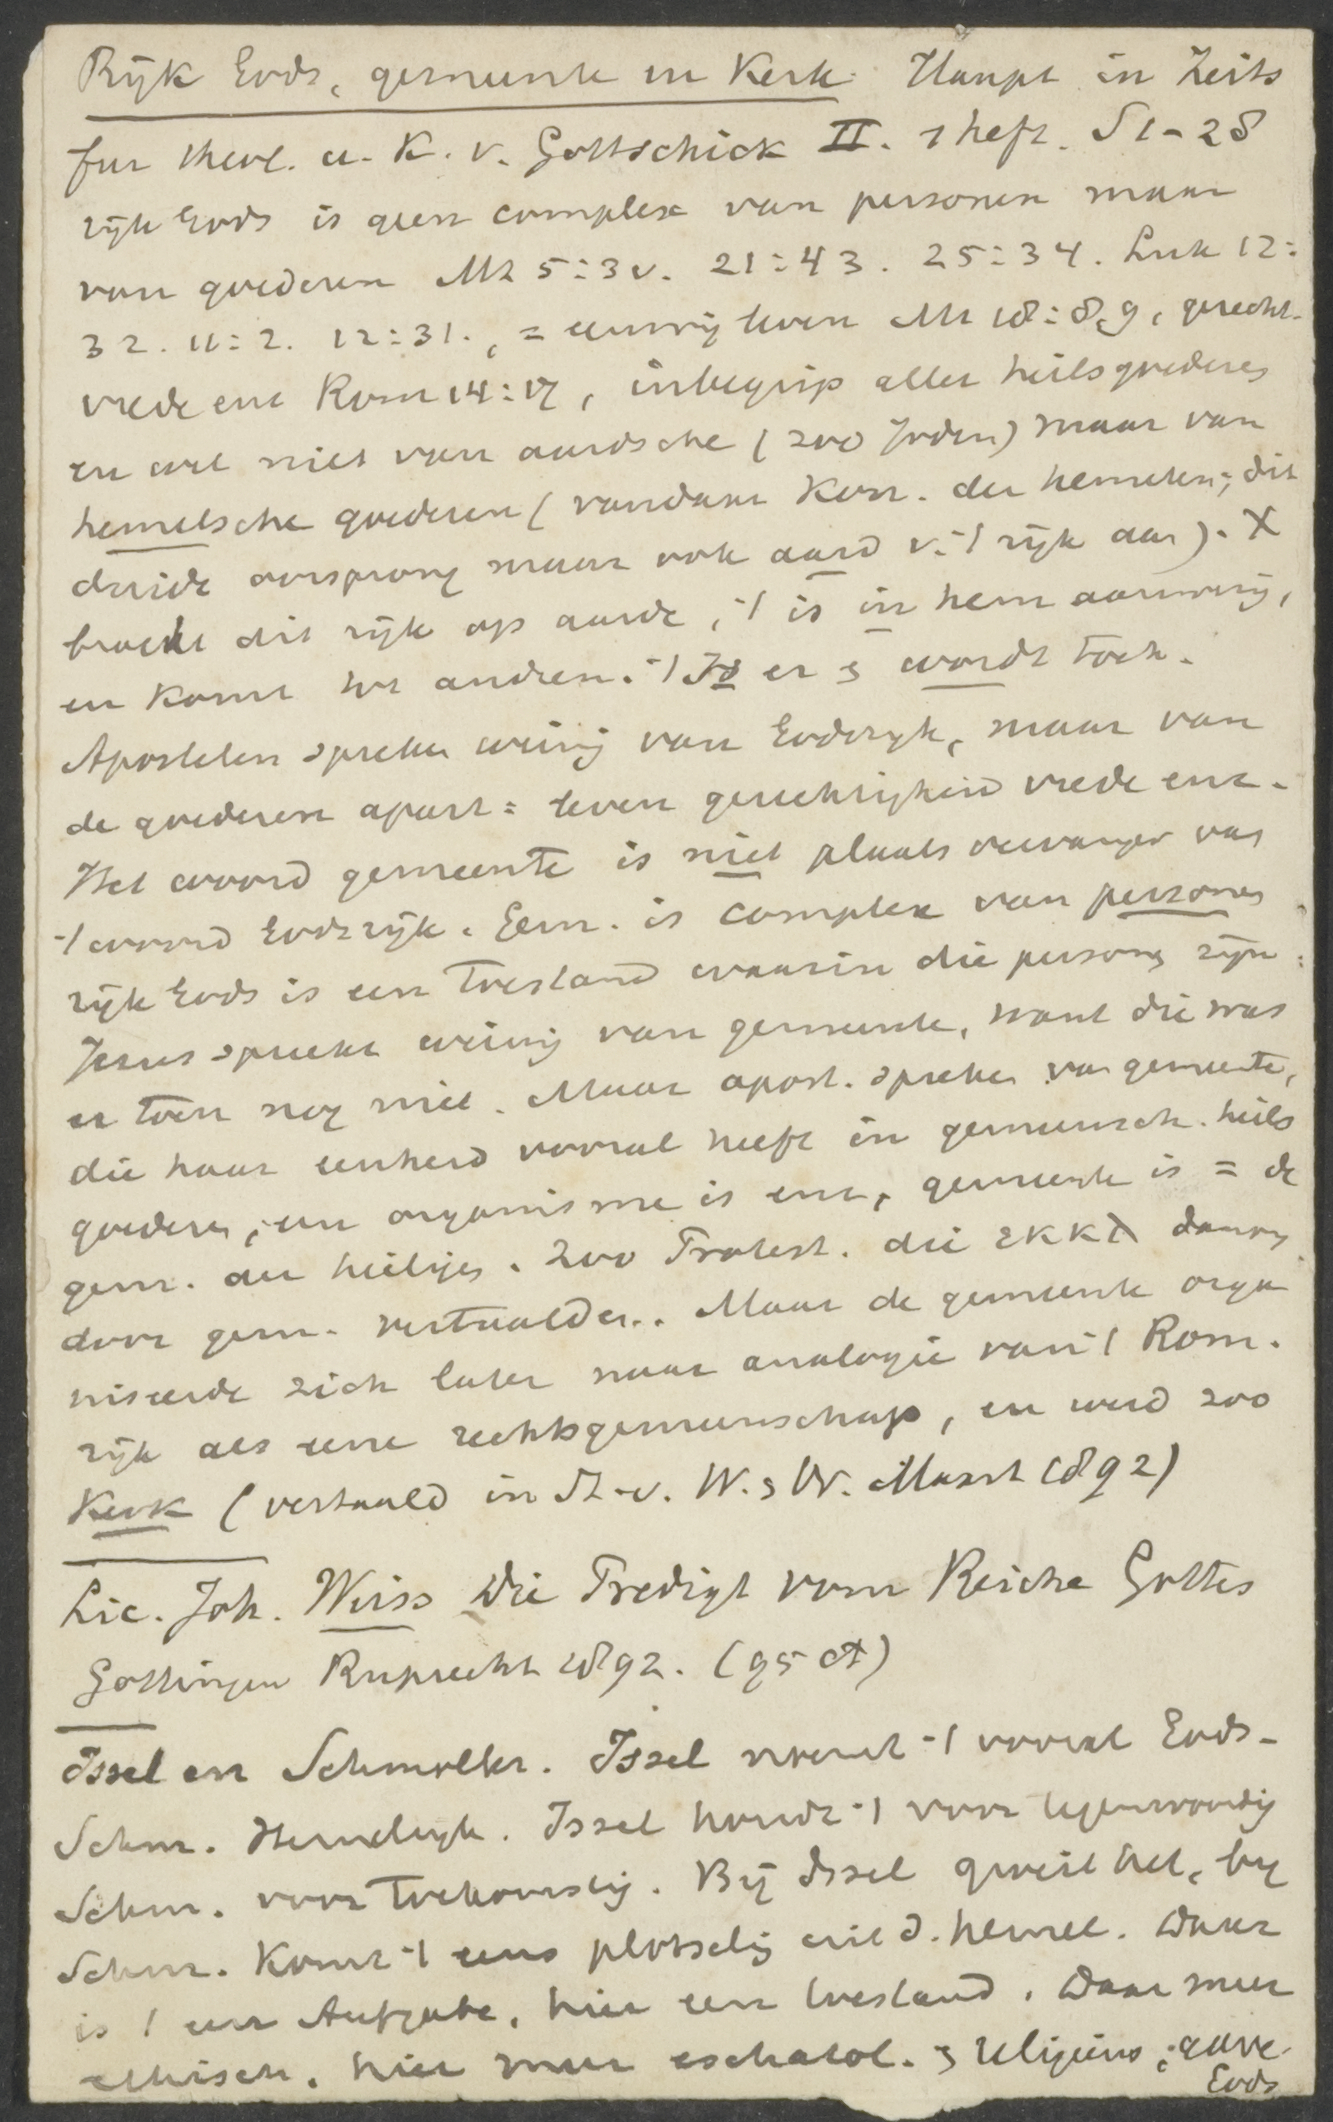 Rijk Gods, gemeente en Kerk. Haupt in Zeits
fur theol. u. K. v. Gottschick II. 1 heft. S 1-28
rijk Gods is geen complex van personen maar
van goederen Mt 5:3v. 21:43. 25:34. Luk 12:
32. 11:2. 12:31., = eeuwig leven Mt 18:8,9, gerecht.
vrede enz Rom 14:17, inbegrip aller heilsgoederen
en wel niet van aardsche (zoo Joden) maar van
hemelsche goederen (vandaar Kon. der hemelen; dit
duidt oorsprong maar ook aard v. 't rijk aan). X
bracht dit rijk op aarde, 't is in hem aanwezig,
en komt tot andren. 't Is er en wordt toch.
Apostelen spreken weinig van Godsrijk, maar van
de goederen apart = leven gerechtigheid vrede enz.
Het woord gemeente is niet plaatsvervanger van
't woord Godsrijk. Gem. is complex van personen
rijk Gods is een toestand waarin die personen zijn.
Jezus spreekt weinig van gemeente, want die was
er toen nog niet. Maar apost. spreken van gemeente,
die haar eenheid vooral heeft in gemeensch. heils
goederen, een organisme is enz, gemeente is = de
gem. der heiligen. Zoo Protest. die εκκλ daarom
door gem. vertaalden.. Maar de gemeente orga
niseerde zich later naar analogie van 't Rom.
rijk als eene rechtsgemeenschap, en werd zoo
Kerk (vertaald in St. v. W. en Vr. Maart 1892)
Lic. Joh. Weiss Die Predigt vom Reiche Gottes
Gottingen Ruprecht 1892. (95 ct)
Issel en Schmoller. Issel noemt 't vooral Gods-
Schm. Hemelrijk. Issel houdt 't voor tegenwoordig
Schm. voor toekomstig. Bij Issel groeit het, bij
Schm. komt 't eens plotselig uit d. hemel. Daar
is 't een Aufgabe, hier een toestand. Daar meer
ethisch, hier meer eschatol. en religieus, gave
Gods